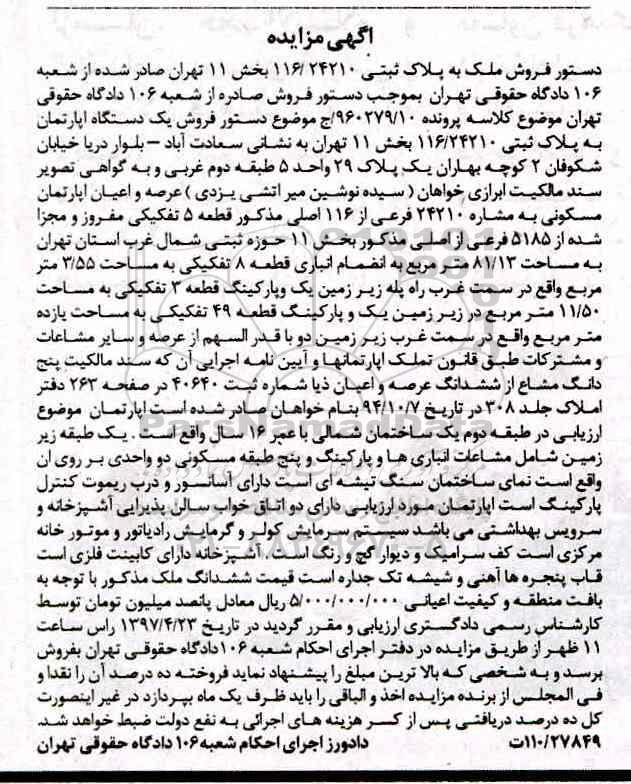 آگهی مزایده
دستور فروش ملک به پلاک ثبتی ۱۱۶/۲۴۲۱۰ بخش ۱۱ تهران صادر شده از شعبه
۱۰۶ دادگاه حقوقی تهران بموجب دستور فروش صادره از شعبه ۱۰۶ دادگاه حقوقی
تهران موضوع کلاسه پرونده ۹۶۰۲۷۹/۱۰/ج موضوع دستور فروش یک دستگاه اپارتمان
به پلاک ثبتی ۱۱۶/۲۴۲۱۰ بخش ۱۱ تهران به نشانی سعادت آباد – بلوار دریا خیابان
شکوفان ۲ کوچه بهاران یک پلاک ۲۹ واحد ۵ طبقه دوم غربی و به گواهی تصویر
سند مالکیت ابرازی خواهان ( سیده نوشین میر اتشی یزدی ) عرصه و اعیان اپارتمان
مسکونی به مشاره ۲۴۲۱۰ فرعی از ۱۱۶ اصلی مذکور قطعه ۵ تفکیکی مفروز و مجزا
شده از ۵۱۸۵ فرعی از اصلی مذکور بخش ۱۱ حوزه ثبتی شمال غرب استان تهران
به مساحت ۸۱/۱۳ متر مربع به انضمام انباری قطعه ۸ تفکیکی به مساحت ۳/۵۵ متر
مربع واقع در سمت غرب راه پله زیر زمین یک وپارکینگ قطعه ۳ تفکیکی به مساحت
۱۱/۵۰ متر مربع در زیر زمین یک و پارکینگ قطعه ۴۹ تفکیکی به مساحت یازده
متر مربع واقع در سمت غرب زیر زمین دو با قدر السهم از عرصه و سایر مشاعات
و مشترکات طبق قانون تملک اپارتمانها و آیین نامه اجرایی آن که سند مالکیت پنج
دانگ مشاع از ششدانگ عرصه و اعیان ذیا شماره ثبت ۴۰۶۴۰ در صفحه ۲۶۳ دفتر
املاک جلد ۳۰۸ در تاریخ ۹۴/۱۰/۷ بنام خواهان صادر شده است اپارتمان موضوع
ارزیابی در طبقه دوم یک ساختمان شمالی با عمر ۱۶ سال واقع است . یک طبقه زیر
زمین شامل مشاعات انباری ها و پارکینگ و پنج طبقه مسکونی دو واحدی بر روی ان
واقع است نمای ساختمان سنگ تیشه ای است دارای آسانسور و درب ریموت کنترل
پارکینگ است اپارتمان مورد ارزیابی دارای دو اتاق خواب سالن پذیرایی آشپزخانه و
سرویس بهداشتی می باشد سیستم سرمایش کولر و گرمایش رادیاتور و موتور خانه
مرکزی است کف سرامیک و دیوار گچ و رنگ است . آشپزخانه دارای کابینت فلزی است
قاب پنجره ها آهنی و شیشه تک جداره است قیمت ششدانگ ملک مذکور با توجه به
بافت منطقه و کیفیت اعیانی ۵/۰۰۰/۰۰۰/۰۰۰ ریال معادل پانصد میلیون تومان توسط
کارشناس رسمی دادگستری ارزیابی و مقرر گردید در تاریخ ۱۳۹۷/۴/۲۳ راس ساعت
۱۱ ظهر از طریق مزایده در دفتر اجرای احکام شعبه ۱۰۶ دادگاه حقوقی تهران بفروش
برسد و به شخصی که بالا ترین مبلغ را پیشنهاد نماید فروخته ده درصد آن را نقدا و
فی المجلس از برنده مزایده اخذ و الباقی را باید ظرف یک ماه بپردازد در غیر اینصورت
کل ده درصد دریافتی پس از کسر هزینه های اجرائی به نفع دولت ضبط خواهد شد.
۱۱۰/۲۷۸۴۹ت دادورز اجرای احکام شعبه۱۰۶ دادگاه حقوقی تهران
ParsNamadData